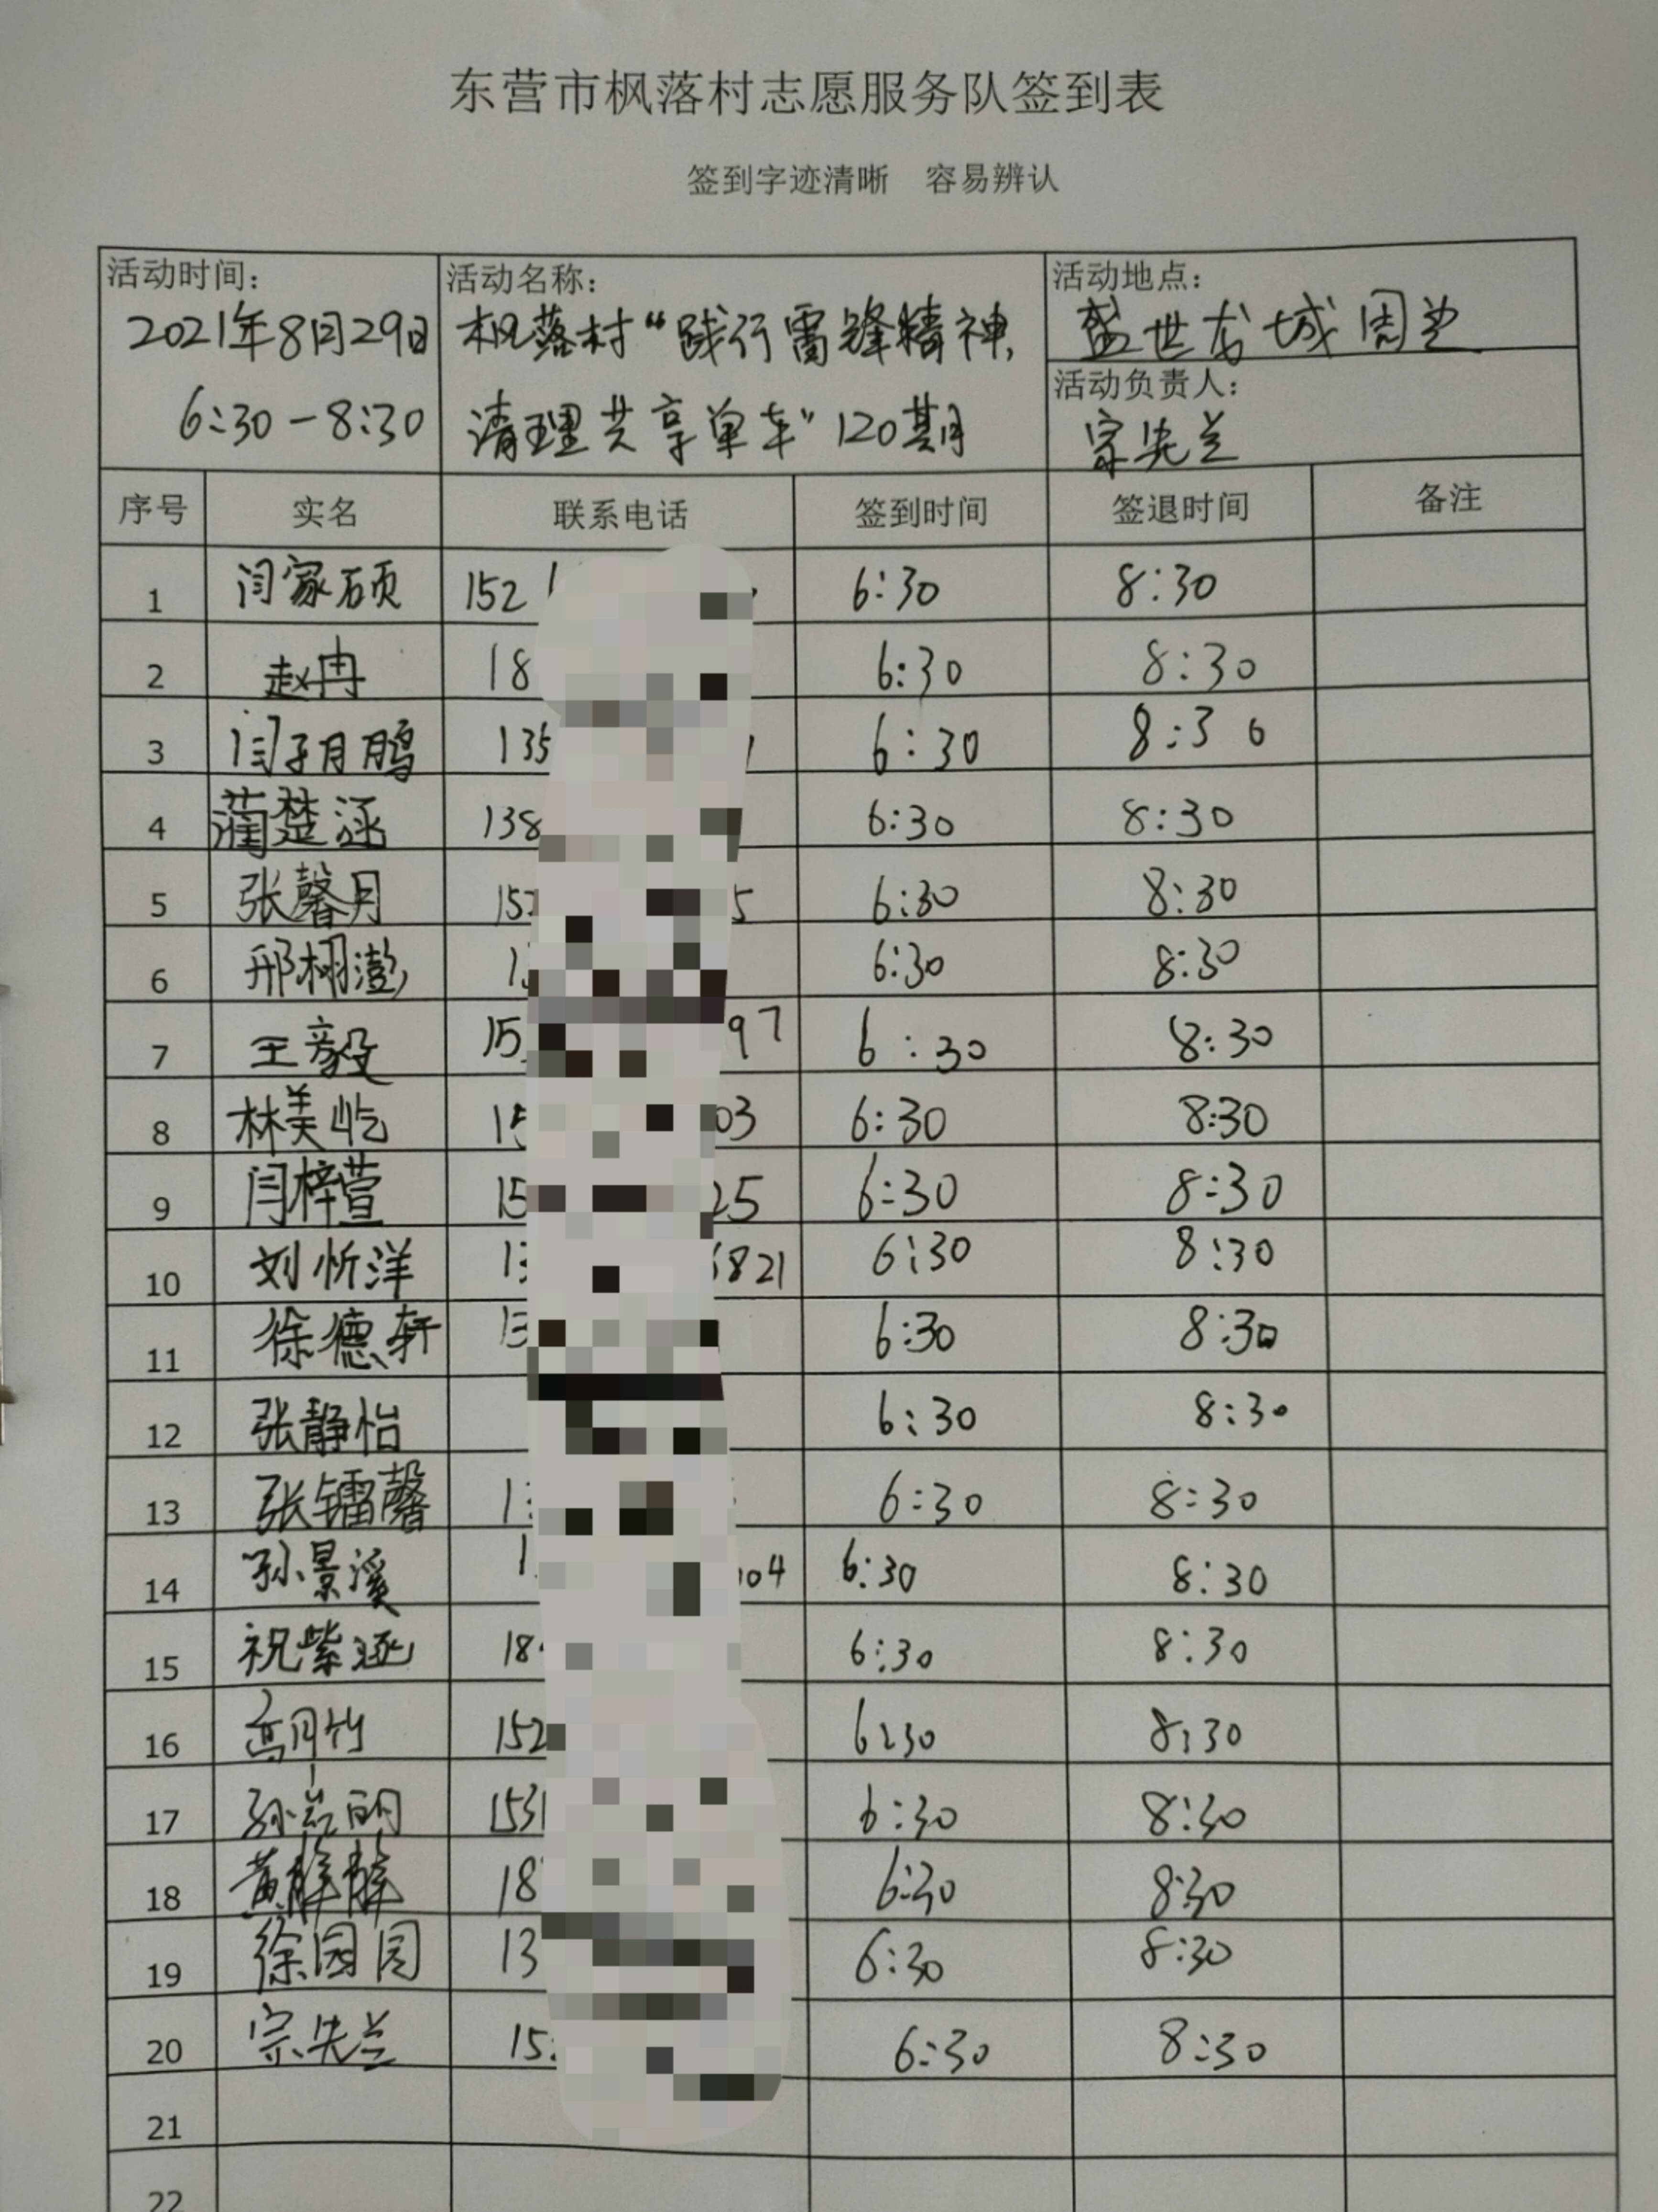 东营市枫落村志愿服务队签到表
签到字迹清晰 容易辨认
活动时间: 活动名称: 活动地点:
2021年8月29日 枫落村“践行雷锋精神, 盛世龙城周边
活动负责人:
6:30-8:30 清理共享单车”120期 宗先兰
序号 实名 联系电话 签到时间 签退时间 备注
1 闫家硕 152 6:30 8:30
2 赵冉 18 6:30 8:30
3 闫子月鹏 135 6:30 8:30
4 蔺楚涵 138 6:30 8:30
5 张馨月 15 5 6:30 8:30
6 邢栩澎 1 6:30 8:30
7 王毅 15 97 6:30 8:30
8 林美屹 15 03 6:30 8:30
9 闫梓萱 15 25 6:30 8:30
10 刘忻洋 13 821 6:30 8:30
11 徐德轩 13 6:30 8:30
12 张静怡 6:30 8:30
13 张镭馨 1 6:30 8:30
14 孙景溪 1 04 6:30 8:30
15 祝紫涵 18 6:30 8:30
16 高月竹 152 6:30 8:30
17 孙 明 1531 6:30 8:30
18 黄 18 6:30 8:30
19 徐园园 13 6:30 8:30
20 宗先兰 15 6:30 8:30
21
22